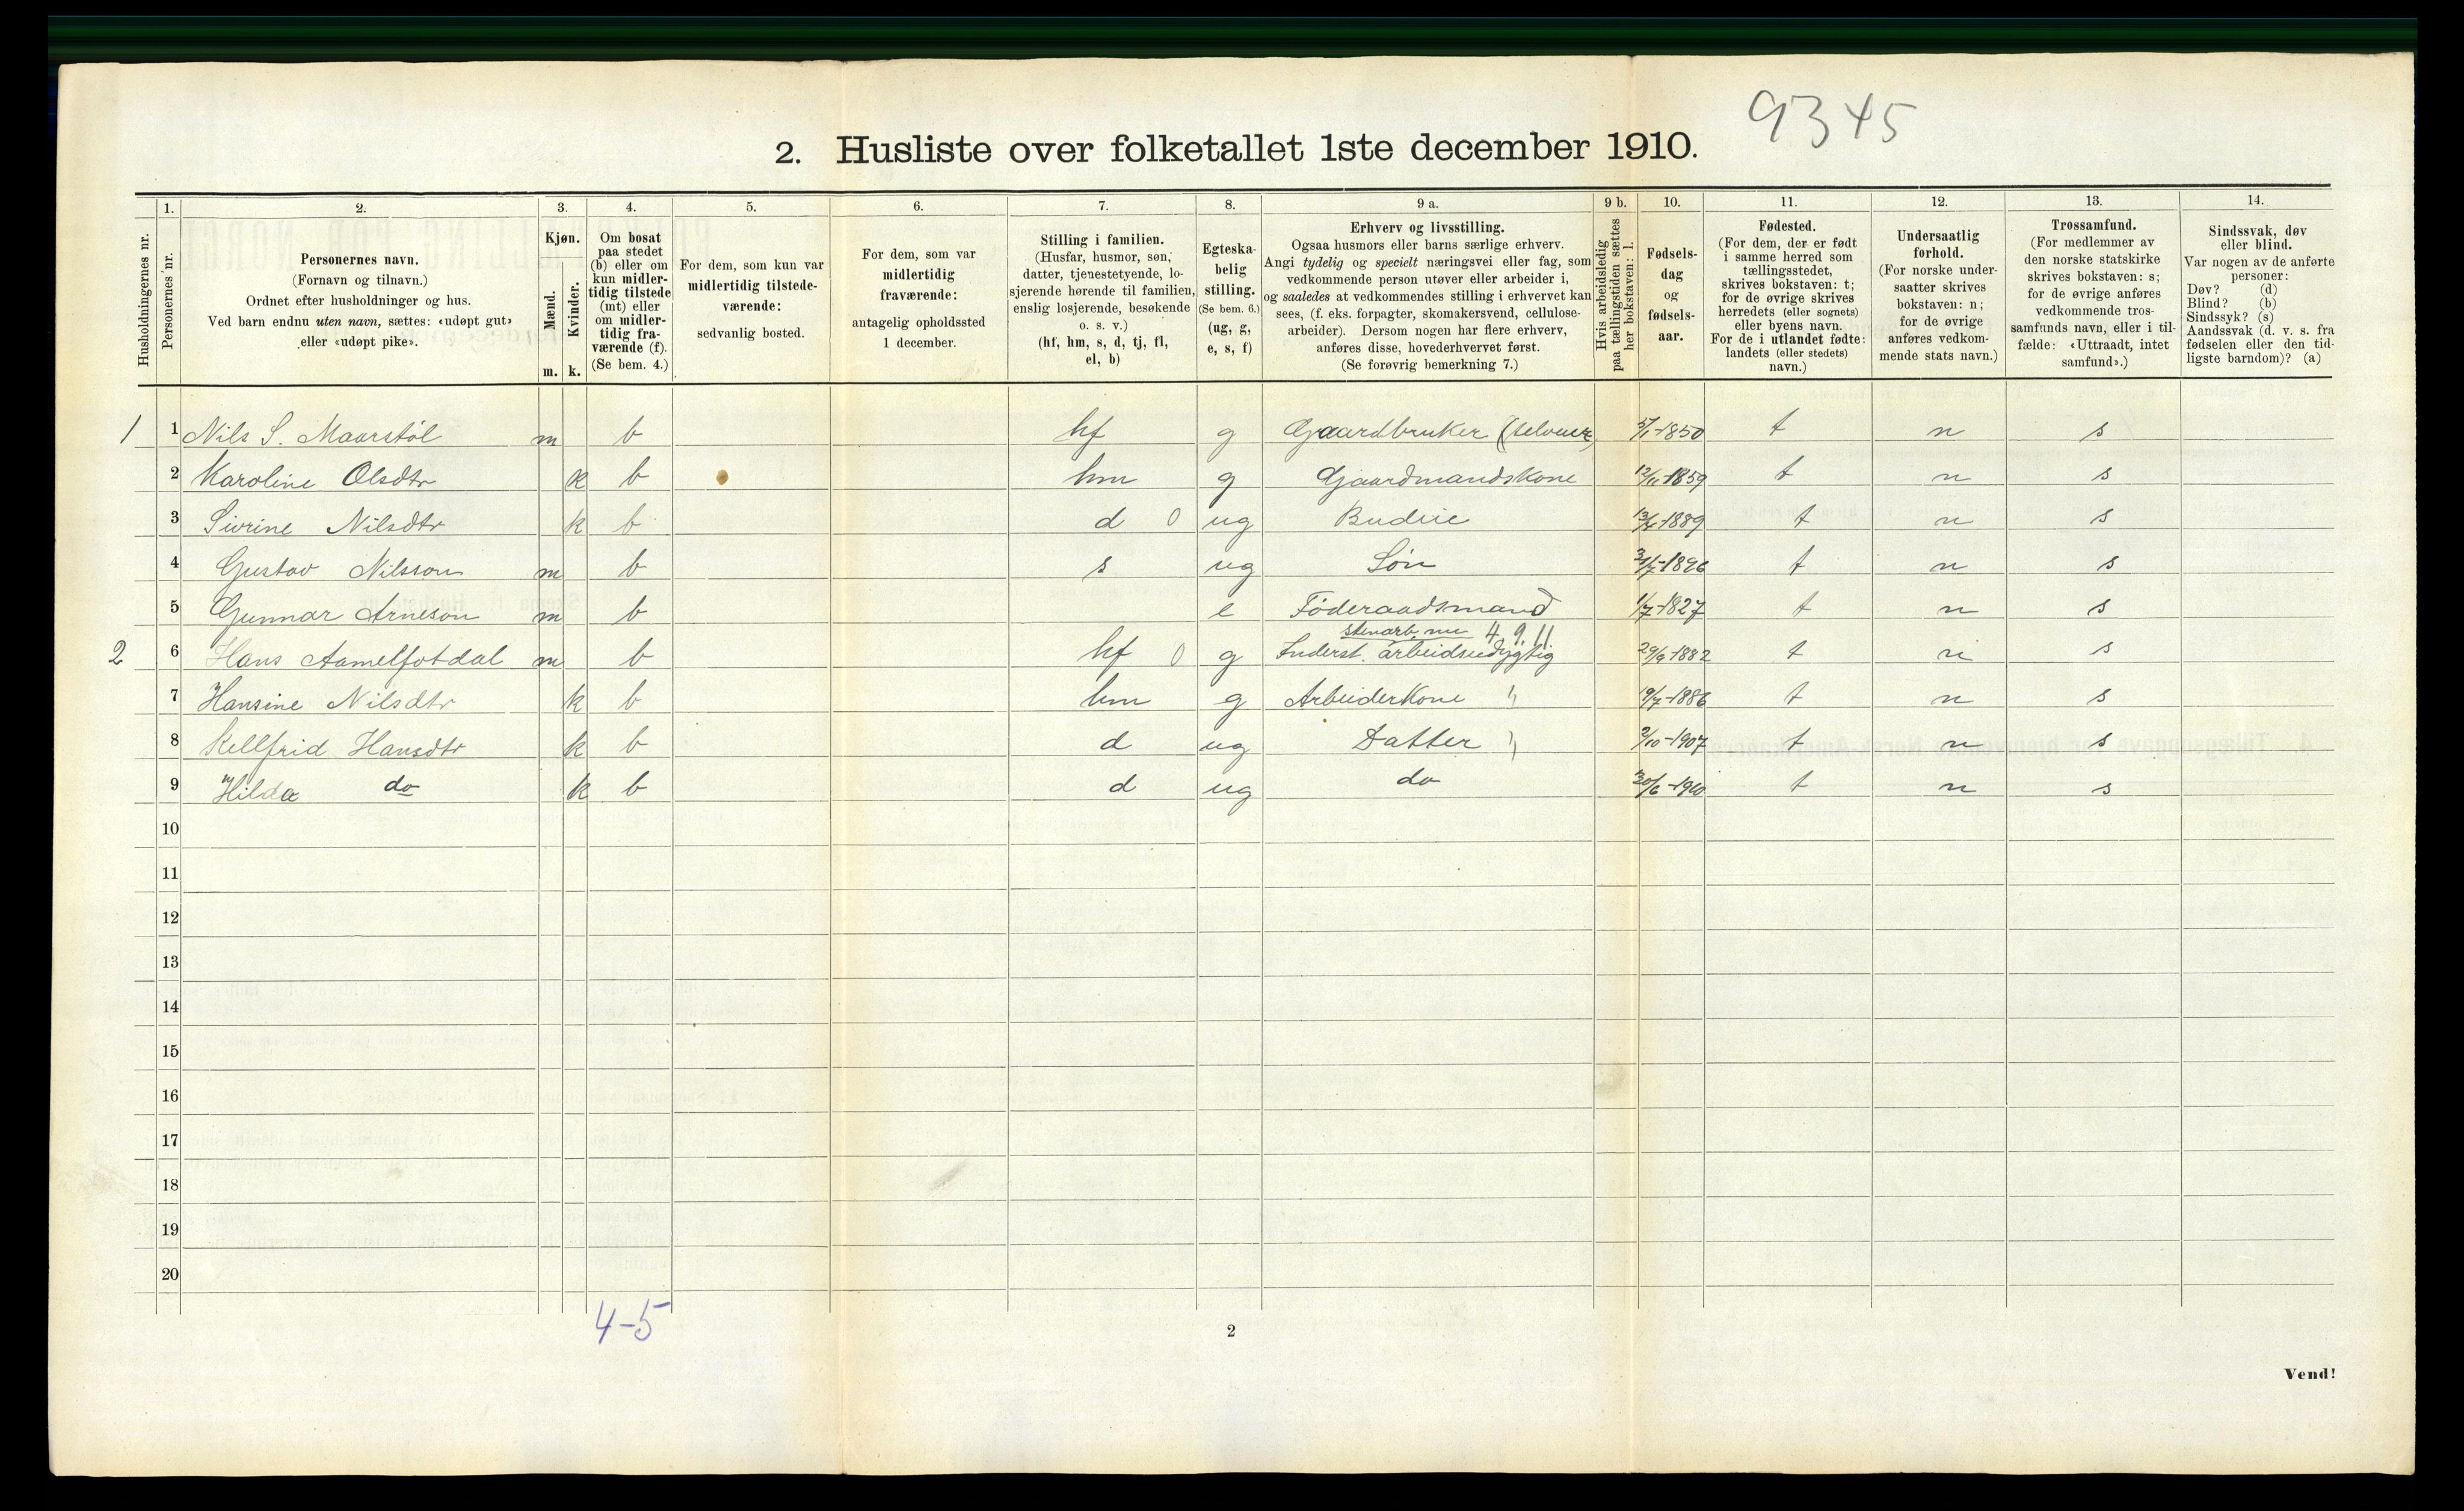 9345
2. Husliste over folketallet 1ste december 1910.
Husholdningernes nr.
1. Personernes nr.
2. Personernes navn.
(Fornavn og tilnavn.)
Ordnet efter husholdninger og hus.
Ved barn endnu uten navn, sættes: «udøpt gut»
eller «udøpt pike».
3. Kjøn.
Mænd. Kvinder.
m. k.
4. Om bosat
paa stedet
(b) eller om
kun midler-
tidig tilstede
(mt) eller
om midler-
tidig fra-
værende (f).
(Se bem. 4.)
5. For dem, som kun var
midlertidig tilstede-
værende:
sedvanlig bosted.
6. For dem, som var
midlertidig
fraværende:
antagelig opholdssted
1 december.
7. Stilling i familien.
(Husfar, husmor, søn,
datter, tjenestetyende, lo-
sjerende hørende til familien,
enslig losjerende, besøkende
o. s. v.)
(hf, hm, s, d, tj, fl,
el, b)
8. Egteska-
belig
stilling.
(Se bem. 6.)
(ug, g,
e, s, f)
9 a. Erhverv og livsstilling.
Ogsaa husmors eller barns særlige erhverv.
Angi tydelig og specielt næringsvei eller fag, som
vedkommende person utøver eller arbeider i,
og saaledes at vedkommendes stilling i erhvervet kan
sees, (f. eks. forpagter, skomakersvend, cellulose-
arbeider). Dersom nogen har flere erhverv,
anføres disse, hovederhvervet først.
(Se forøvrig bemerkning 7.)
9 b. Hvis arbeidsledig
paa tællingstiden sættes
her bokstaven: l.
10. Fødsels-
dag
og
fødsels-
aar.
11. Fødested.
(For dem, der er født
i samme herred som
tællingsstedet,
skrives bokstaven: t;
for de øvrige skrives
herredets (eller sognets)
eller byens navn.
For de i utlandet fødte:
landets (eller stedets)
navn.)
12. Undersaatlig
forhold.
(For norske under-
saatter skrives
bokstaven: n;
for de øvrige
anføres vedkom-
mende stats navn.)
13. Trossamfund.
(For medlemmer av
den norske statskirke
skrives bokstaven: s;
for de øvrige anføres
vedkommende tros-
samfunds navn, eller i til-
fælde: «Uttraadt, intet
samfund».)
14. Sindssvak, døv
eller blind.
Var nogen av de anførte
personer:
Døv? (d)
Blind? (b)
Sindssyk? (s)
Aandssvak (d. v. s. fra
fødselen eller den tid-
ligste barndom)? (a)
1 1 Nils S. Maarstøl m b hf g Gaardbruker (selveier) 5/1-1850 t n s
2 Karoline Olsdtr k b hm g Gaardmandskone 12/11-1859 t n s
3 Sivrine Nilsdtr k b d 0 ug Budeie -1889 t n s
4 Gustav Nilsson m b s ug Søn 31/7-1896 t n s
5 Gunnar Arneson m b e Föderaadsmand 1/7-1827 t n s
stenarb. nu 4.9.11
2 6 Hans Aamelfotdal m b hf 0 g Inderst. arbeidsudygtig 29/9-1882 t n s
7 Hansine Nilsdtr k b hm g Arbeiderkone " 19/7-1886 t n s
8 Kellfrid Hansdtr k b d ug Datter " 2/10-1907 t n s
9 Hilda do k b d ug do 30/6-1910 t n s
10
11
12
13
14
15
16
17
18
19
20
4-5
2
Vend!